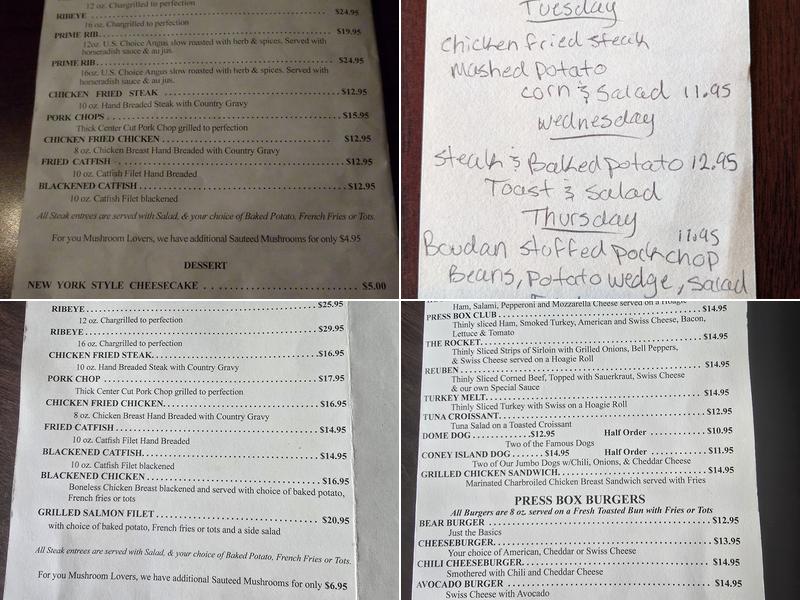 12 oz. Chargrilled to perfection
RIBEYE $24.95
16 oz. Chargrilled to perfection
PRIME RIB $19.95
12oz. U.S. Choice Angus slow roasted with herb & spices. Served with
horseradish sauce & au jus.
PRIME RIB $24.95
16oz. U.S. Choice Angus slow roasted with herb & spices. Served with
horseradish sauce & au jus.
CHICKEN FRIED STEAK $12.95
10 oz. Hand Breaded Steak with Country Gravy
PORK CHOPS $15.95
Thick Center Cut Pork Chop grilled to perfection
CHICKEN FRIED CHICKEN $12.95
8 oz. Chicken Breast Hand Breaded with Country Gravy
FRIED CATFISH $12.95
10 oz. Catfish Filet Hand Breaded
BLACKENED CATFISH $12.95
10 oz. Catfish Filet blackened
All Steak entrees are served with Salad, & your choice of Baked Potato, French Fries or Tots.
For you Mushroom Lovers, we have additional Sauteed Mushrooms for only $4.95
DESSERT
NEW YORK STYLE CHEESECAKE $5.00
Tuesday
chicken fried steak
mashed potato
corn & salad 11.95
wednesday
steak & Baked potato 12.95
Toast & salad
Thursday
11.95
Boudan stoffed porkchop
Beans, potato wedge, salad
RIBEYE $25.95
12 oz. Chargrilled to perfection
RIBEYE $29.95
16 oz. Chargrilled to perfection
CHICKEN FRIED STEAK $16.95
10 oz. Hand Breaded Steak with Country Gravy
PORK CHOP $17.95
Thick Center Cut Pork Chop grilled to perfection
CHICKEN FRIED CHICKEN $16.95
8 oz. Chicken Breast Hand Breaded with Country Gravy
FRIED CATFISH $14.95
10 oz. Catfish Filet Hand Breaded
BLACKENED CATFISH $14.95
10 oz. Catfish Filet blackened
BLACKENED CHICKEN $16.95
Boneless Chicken Breast blackened and served with choice of baked potato,
French fries or tots
GRILLED SALMON FILET $20.95
with choice of baked potato, French fries or tots and a side salad
All Steak entrees are served with Salad, & your choice of Baked Potato, French Fries or Tots.
For you Mushroom Lovers, we have additional Sauteed Mushrooms for only $6.95
Ham, Salami, Pepperoni and Mozzarella Cheese served on a Hoagie
PRESS BOX CLUB $14.95
Thinly sliced Ham, Smoked Turkey, American and Swiss Cheese, Bacon,
Lettuce & Tomato
THE ROCKET $14.95
Thinly Sliced Strips of Sirloin with Grilled Onions, Bell Peppers,
& Swiss Cheese served on a Hoagie Roll
REUBEN $14.95
Thinly Sliced Corned Beef, Topped with Sauerkraut, Swiss Cheese
& our own Special Sauce
TURKEY MELT $14.95
Thinly Sliced Turkey with Swiss on a Hoagie Roll
TUNA CROISSANT $12.95
Tuna Salad on a Toasted Croissant
DOME DOG $12.95 Half Order $10.95
Two of the Famous Dogs
CONEY ISLAND DOG $14.95 Half Order $11.95
Two of Our Jumbo Dogs w/Chili, Onions, & Cheddar Cheese
GRILLED CHICKEN SANDWICH $14.95
Marinated Charbroiled Chicken Breast Sandwich served with Fries
PRESS BOX BURGERS
All Burgers are 8 oz. served on a Fresh Toasted Bun with Fries or Tots
BEAR BURGER $12.95
Just the Basics
CHEESEBURGER $13.95
Your choice of American, Cheddar or Swiss Cheese
CHILI CHEESEBURGER $14.95
Smothered with Chili and Cheddar Cheese
AVOCADO BURGER $14.95
Swiss Cheese with Avocado